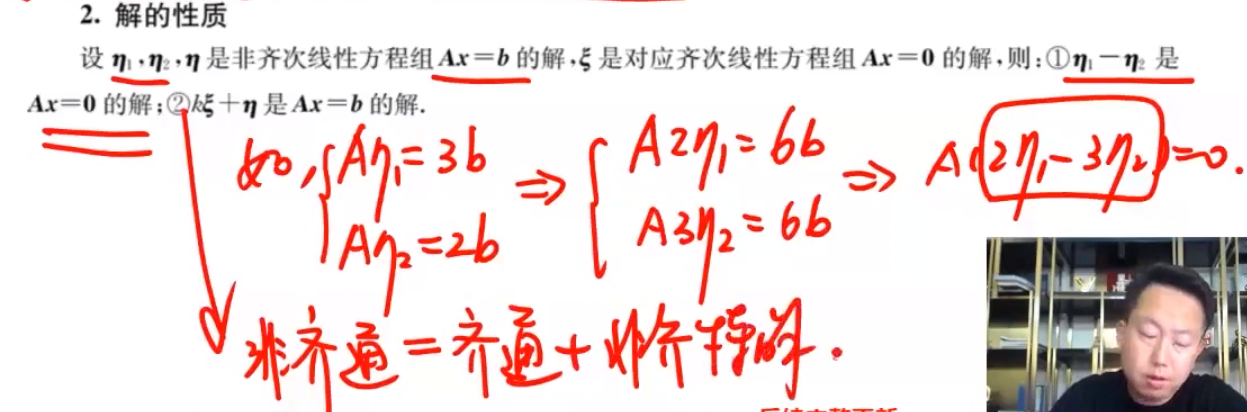 2. 解的性质
设 η₁,η₂,η 是非齐次线性方程组 Ax=b 的解,ξ 是对应齐次线性方程组 Ax=0 的解,则:①η₁-η₂ 是
Ax=0 的解;②kξ+η 是 Ax=b 的解.
如, { Aη₁=3b ⇒ { A2η₁=6b ⇒ A(2η₁-3η₂)=0.
Aη₂=2b A3η₂=6b
非齐通=齐通+非齐特解.